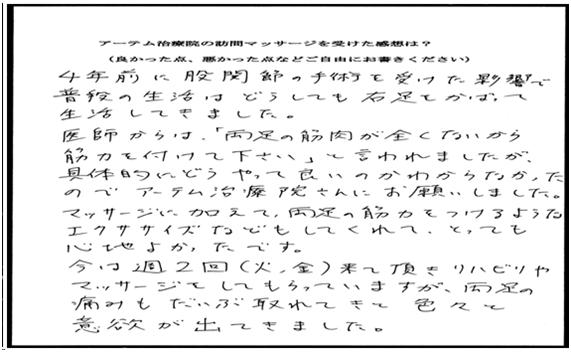 アーテム治療院の訪問マッサージを受けた感想は？
（良かった点、悪かった点などご自由にお書きください）
4年前に股関節の手術を受けた影響で
普段の生活はどうしても右足をかばって
生活してきました。
医師からは、「両足の筋肉が全くないから
筋力を付けて下さい」と言われましたが、
具体的にどうやって良いのかわからなかった
のでアーテム治療院さんにお願いしました。
マッサージに加えて、両足の筋力をつけるような
エクササイズなどもしてくれて、とっても
心地よかったです。
今は週2回（火、金）来て頂きリハビリや
マッサージをしてもらっていますが、両足の
痛みもだいぶ取れてきて色々と
意欲が出てきました。